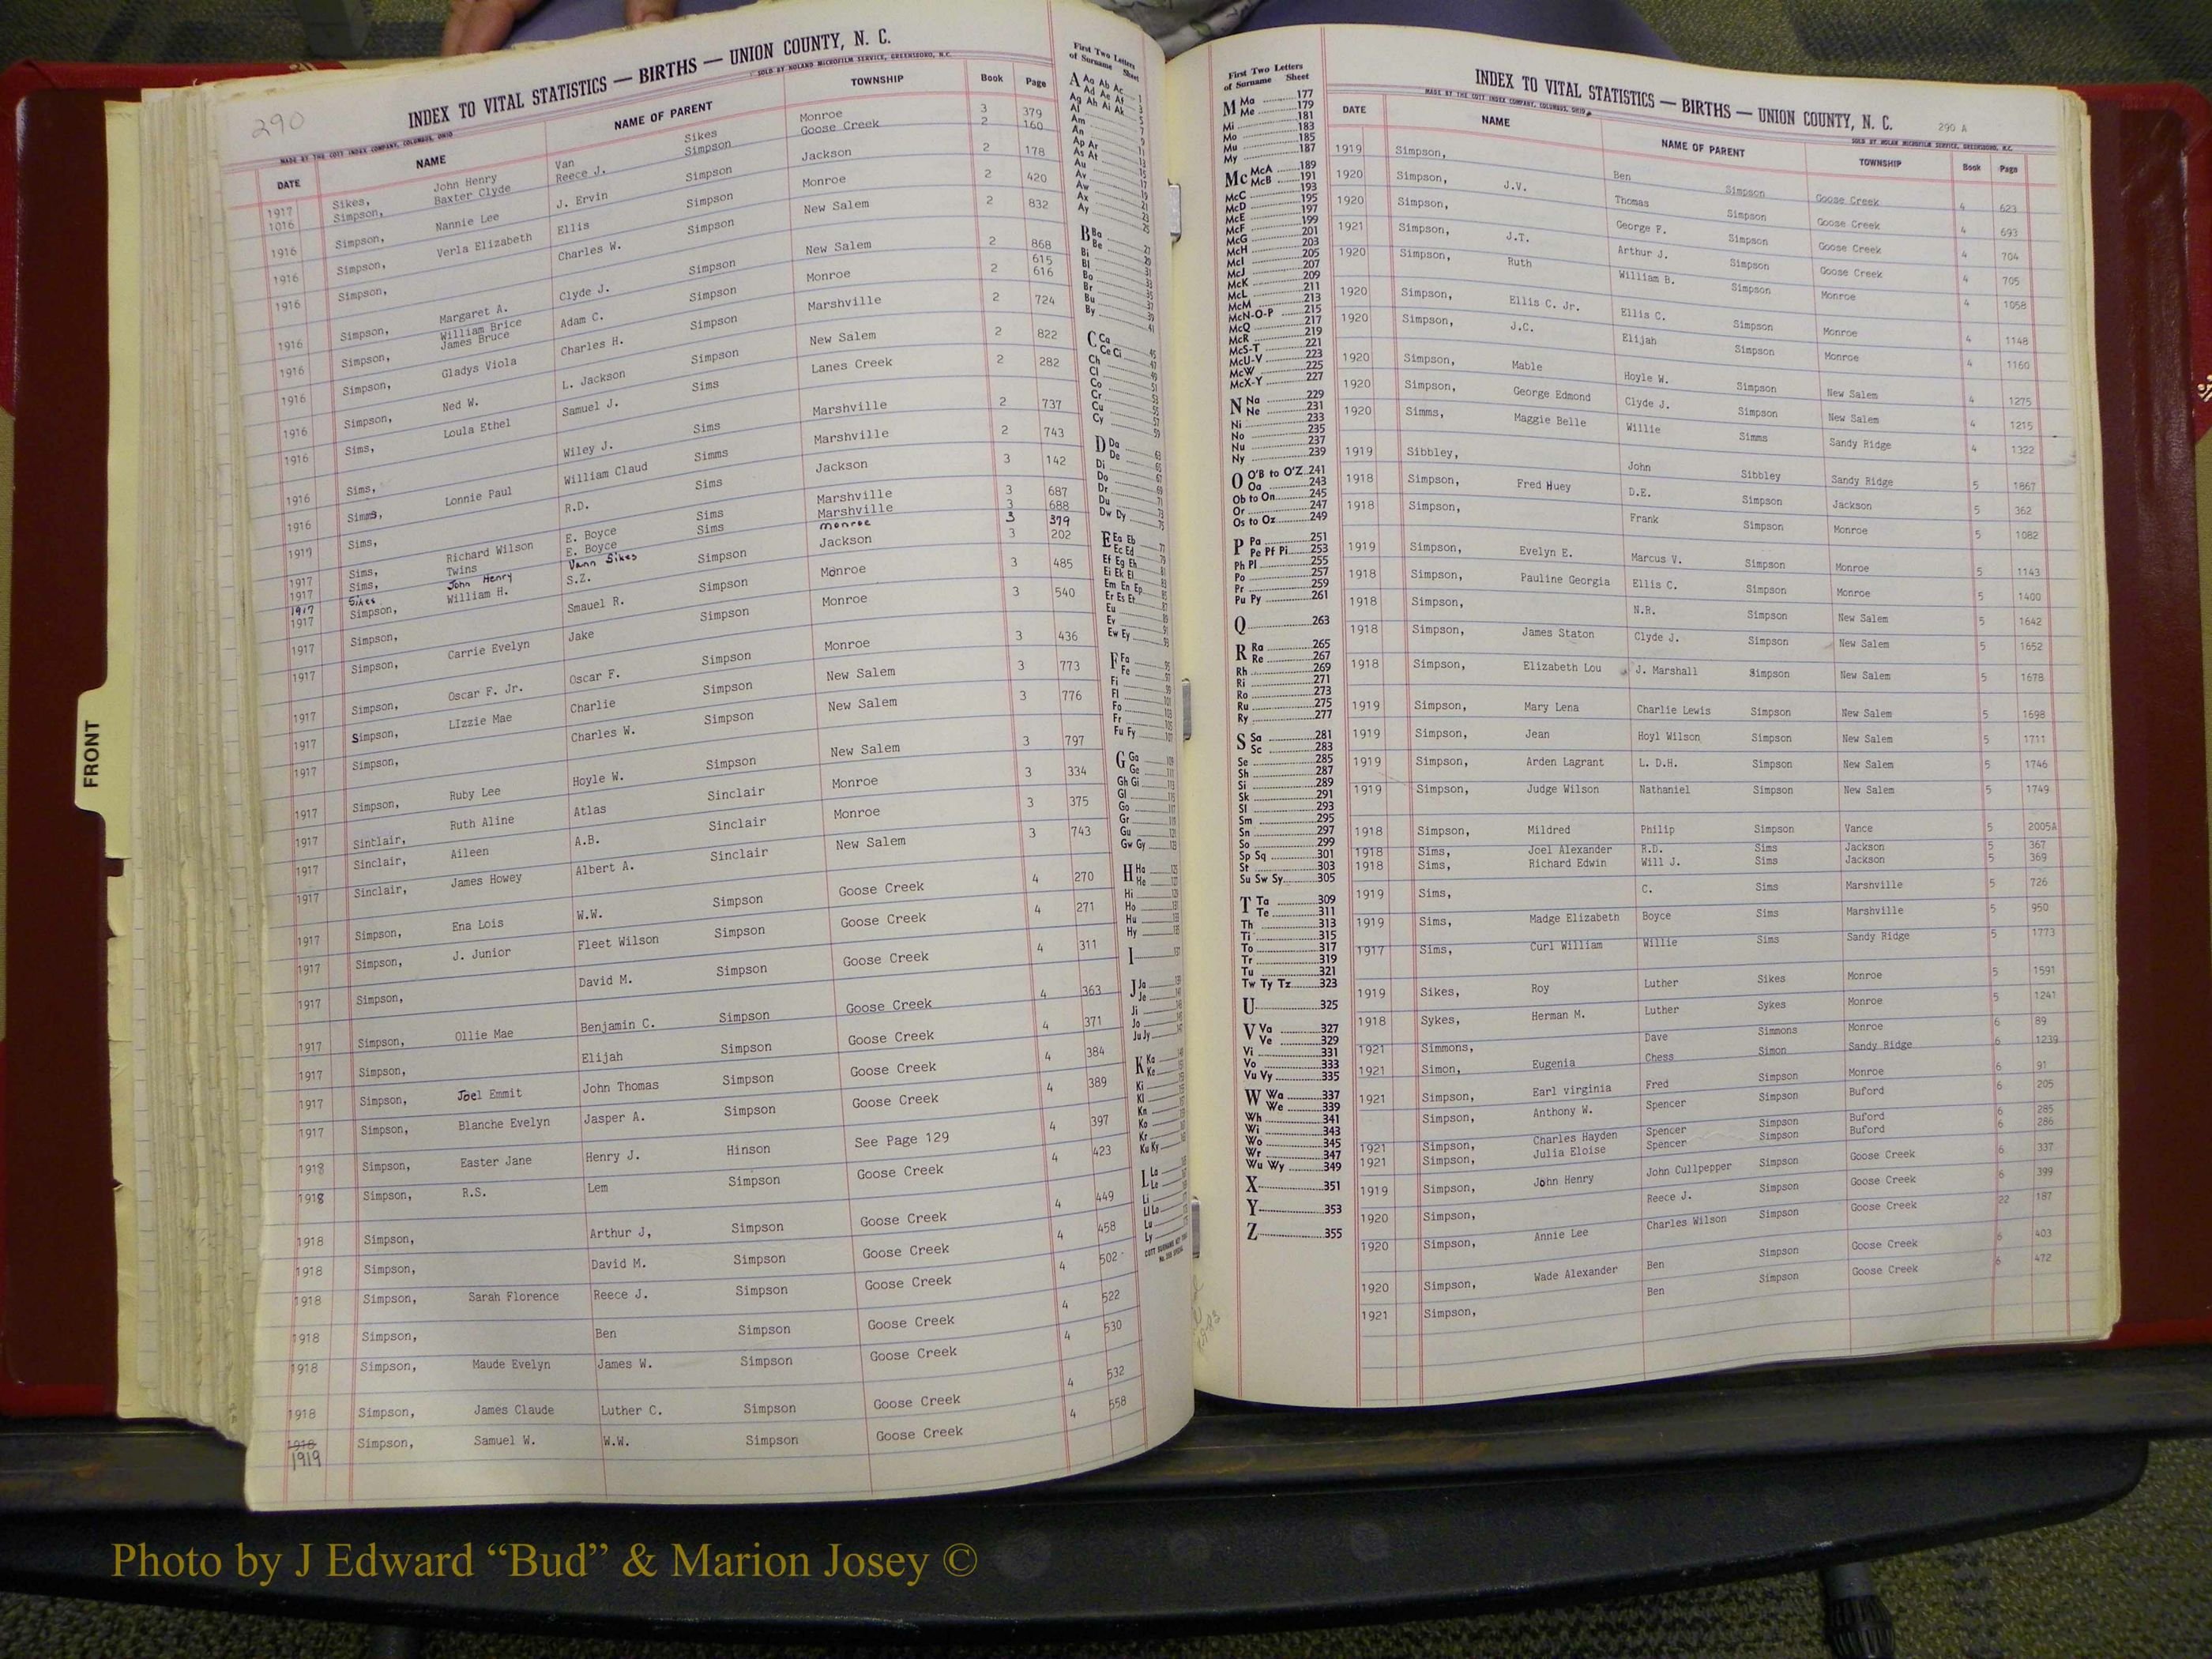 290
INDEX TO VITAL STATISTICS — BIRTHS — UNION COUNTY, N. C.
MADE BY THE COTT INDEX COMPANY, COLUMBUS, OHIO SOLD BY NOLAND MICROFILM SERVICE, GREENSBORO, N.C.
DATE NAME NAME OF PARENT TOWNSHIP Book Page
1917 Sikes, John Henry Van Sikes Monroe 3 379
1016 Simpson, Baxter Clyde Reece J. Simpson Goose Creek 2 160
1916 Simpson, Nannie Lee J. Ervin Simpson Jackson 2 178
1916 Simpson, Verla Elizabeth Ellis Simpson Monroe 2 420
1916 Simpson, Charles W. Simpson New Salem 2 832
1916 Simpson, Margaret A. Clyde J. Simpson New Salem 2 868
1916 Simpson, William Brice James Bruce Adam C. Simpson Monroe 2 615 616
1916 Simpson, Gladys Viola Charles H. Simpson Marshville 2 724
1916 Simpson, Ned W. L. Jackson Simpson New Salem 2 822
1916 Sims, Loula Ethel Samuel J. Sims Lanes Creek 2 282
1916 Sims, Wiley J. Sims Marshville 2 737
1916 Simms, Lonnie Paul William Claud Simms Marshville 2 743
1917 Sims, R.D. Sims Jackson 3 142
1917 Sims, Richard Wilson E. Boyce Sims Marshville 3 687
1917 Sims, Twins E. Boyce Sims Marshville 3 688
1917 Sikes John Henry Vann Sikes monroe 3 379
1917 Simpson, William H. S.Z. Simpson Jackson 3 202
1917 Simpson, Smauel R. Simpson Monroe 3 485
1917 Simpson, Carrie Evelyn Jake Simpson Monroe 3 540
1917 Simpson, Oscar F. Jr. Oscar F. Simpson Monroe 3 436
1917 Simpson, LIzzie Mae Charlie Simpson New Salem 3 773
1917 Simpson, Charles W. Simpson New Salem 3 776
1917 Simpson, Ruby Lee Hoyle W. Simpson New Salem 3 797
1917 Sintlair, Ruth Aline Atlas Sinclair Monroe 3 334
1917 Sinclair, Aileen A.B. Sinclair Monroe 3 375
1917 Sinclair, James Howey Albert A. Sinclair New Salem 3 743
1917 Simpson, Ena Lois W.W. Simpson Goose Creek 4 270
1917 Simpson, J. Junior Fleet Wilson Simpson Goose Creek 4 271
1917 Simpson, David M. Simpson Goose Creek 4 311
1917 Simpson, Ollie Mae Benjamin C. Simpson Goose Creek 4 363
1917 Simpson, Elijah Simpson Goose Creek 4 371
1917 Simpson, Joel Emmit John Thomas Simpson Goose Creek 4 384
1917 Simpson, Blanche Evelyn Jasper A. Simpson Goose Creek 4 389
1918 Simpson, Easter Jane Henry J. Hinson See Page 129 4 397
1918 Simpson, R.S. Lem Simpson Goose Creek 4 423
1918 Simpson, Arthur J, Simpson Goose Creek 4 449
1918 Simpson, David M. Simpson Goose Creek 4 458
1918 Simpson, Sarah Florence Reece J. Simpson Goose Creek 4 502
1918 Simpson, Ben Simpson Goose Creek 4 522
1918 Simpson, Maude Evelyn James W. Simpson Goose Creek 4 530
1918 Simpson, James Claude Luther C. Simpson Goose Creek 4 532
1918 Simpson, Samuel W. W.W. Simpson Goose Creek 4 558
1919
FRONT
First Two Letters
of Surname Sheet
A Aa Ab Ac 1
Ad Ae Af 3
Ag Ah Ai Ak 5
Al 7
Am 9
An 11
Ap Ar 13
As At 15
Au 17
Av 19
Aw 21
Ax 23
Ay 25
B Ba 27
Be 29
Bi 31
Bl 33
Bo 35
Br 37
Bu 39
By 41
C Ca 45
Ce Ci 47
Ch 49
Cl 51
Co 53
Cr 55
Cu 57
Cy 59
D Da 63
De 65
Di 67
Do 69
Dr 71
Du 73
Dw Dy 75
E Ea Eb 77
Ec Ed 79
Ef Eg Eh 81
Ei Ek El 83
Em En Ep 85
Er Es Et 87
Eu 89
Ev 91
Ew Ey 93
F Fa 95
Fe 97
Fi 99
Fl 101
Fo 103
Fr 105
Fu Fy 107
G Ga 109
Ge 111
Gh Gi 113
Gl 115
Go 117
Gr 119
Gu 121
Gw Gy 123
H Ha 125
He 127
Hi 129
Ho 131
Hu 133
Hy 135
I 137
J Ja
Je
Ji
Jo
Ju Jy
K Ka
Ke
Ki
Kl
Kn
Ko
Kr
Ku Ky
L La
Le
Li
Ll Lo
Lu
Ly
First Two Letters
of Surname Sheet
M Ma 177
Me 179
Mi 181
Mo 183
Mu 185
My 187
Mc McA 189
McB 191
McC 193
McD 195
McE 197
McF 199
McG 201
McH 203
McI 205
McJ 207
McK 209
McL 211
McM 213
McN-O-P 215
McQ 217
McR 219
McS-T 221
McU-V 223
McW 225
McX-Y 227
N Na 229
Ne 231
Ni 233
No 235
Nu 237
Ny 239
O O'B to O'Z 241
Oa 243
Ob to On 245
Or 247
Os to Oz 249
P Pa 251
Pe Pf Pi 253
Ph Pl 255
Po 257
Pr 259
Pu Py 261
Q 263
R Ra 265
Re 267
Rh 269
Ri 271
Ro 273
Ru 275
Ry 277
S Sa 281
Sc 283
Se 285
Sh 287
Si 289
Sk 291
Sl 293
Sm 295
Sn 297
So 299
Sp Sq 301
St 303
Su Sw Sy 305
T Ta 309
Te 311
Th 313
Ti 315
To 317
Tr 319
Tu 321
Tw Ty Tz 323
U 325
V Va 327
Ve 329
Vi 331
Vo 333
Vu Vy 335
W Wa 337
We 339
Wh 341
Wi 343
Wo 345
Wr 347
Wu Wy 349
X 351
Y 353
Z 355
INDEX TO VITAL STATISTICS — BIRTHS — UNION COUNTY, N. C. 290 A
MADE BY THE COTT INDEX COMPANY, COLUMBUS, OHIO SOLD BY NOLAN MICROFILM SERVICE, GREENSBORO, N.C.
DATE NAME NAME OF PARENT TOWNSHIP Book Page
1919 Simpson, Ben Simpson Goose Creek 4 623
1920 Simpson, J.V. Thomas Simpson Goose Creek 4 693
1920 Simpson, George F. Simpson Goose Creek 4 704
1921 Simpson, J.T. Arthur J. Simpson Goose Creek 4 705
1920 Simpson, Ruth William B. Simpson Monroe 4 1058
1920 Simpson, Ellis C. Jr. Ellis C. Simpson Monroe 4 1148
1920 Simpson, J.C. Elijah Simpson Monroe 4 1160
1920 Simpson, Mable Hoyle W. Simpson New Salem 4 1275
1920 Simpson, George Edmond Clyde J. Simpson New Salem 4 1215
1920 Simms, Maggie Belle Willie Simms Sandy Ridge 4 1322
1919 Sibbley, John Sibbley Sandy Ridge 5 1867
1918 Simpson, Fred Huey D.E. Simpson Jackson 5 362
1918 Simpson, Frank Simpson Monroe 5 1082
1919 Simpson, Evelyn E. Marcus V. Simpson Monroe 5 1143
1918 Simpson, Pauline Georgia Ellis C. Simpson Monroe 5 1400
1918 Simpson, N.R. Simpson New Salem 5 1642
1918 Simpson, James Staton Clyde J. Simpson New Salem 5 1652
1918 Simpson, Elizabeth Lou J. Marshall Simpson New Salem 5 1678
1919 Simpson, Mary Lena Charlie Lewis Simpson New Salem 5 1698
1919 Simpson, Jean Hoyl Wilson Simpson New Salem 5 1711
1919 Simpson, Arden Lagrant L. D.H. Simpson New Salem 5 1746
1919 Simpson, Judge Wilson Nathaniel Simpson New Salem 5 1749
1918 Simpson, Mildred Philip Simpson Vance 5 2005A
1918 Sims, Joel Alexander R.D. Sims Jackson 5 367
1918 Sims, Richard Edwin Will J. Sims Jackson 5 369
1919 Sims, C. Sims Marshville 5 726
1919 Sims, Madge Elizabeth Boyce Sims Marshville 5 950
1917 Sims, Curl William Willie Sims Sandy Ridge 5 1773
1919 Sikes, Roy Luther Sikes Monroe 5 1591
1918 Sykes, Herman M. Luther Sykes Monroe 5 1241
1921 Simmons, Dave Simmons Monroe 6 89
1921 Simon, Eugenia Chess Simon Sandy Ridge 6 1239
1921 Simpson, Earl virginia Fred Simpson Monroe 6 91
Simpson, Anthony W. Spencer Simpson Buford 6 205
1921 Simpson, Charles Hayden Spencer Simpson Buford 6 285
1921 Simpson, Julia Eloise Spencer Simpson Buford 6 286
1919 Simpson, John Henry John Cullpepper Simpson Goose Creek 6 337
1920 Simpson, Reece J. Simpson Goose Creek 6 399
1920 Simpson, Annie Lee Charles Wilson Simpson Goose Creek 22 187
1920 Simpson, Wade Alexander Ben Simpson Goose Creek 6 403
1921 Simpson, Ben Simpson Goose Creek 6 472
Photo by J Edward “Bud” & Marion Josey ©